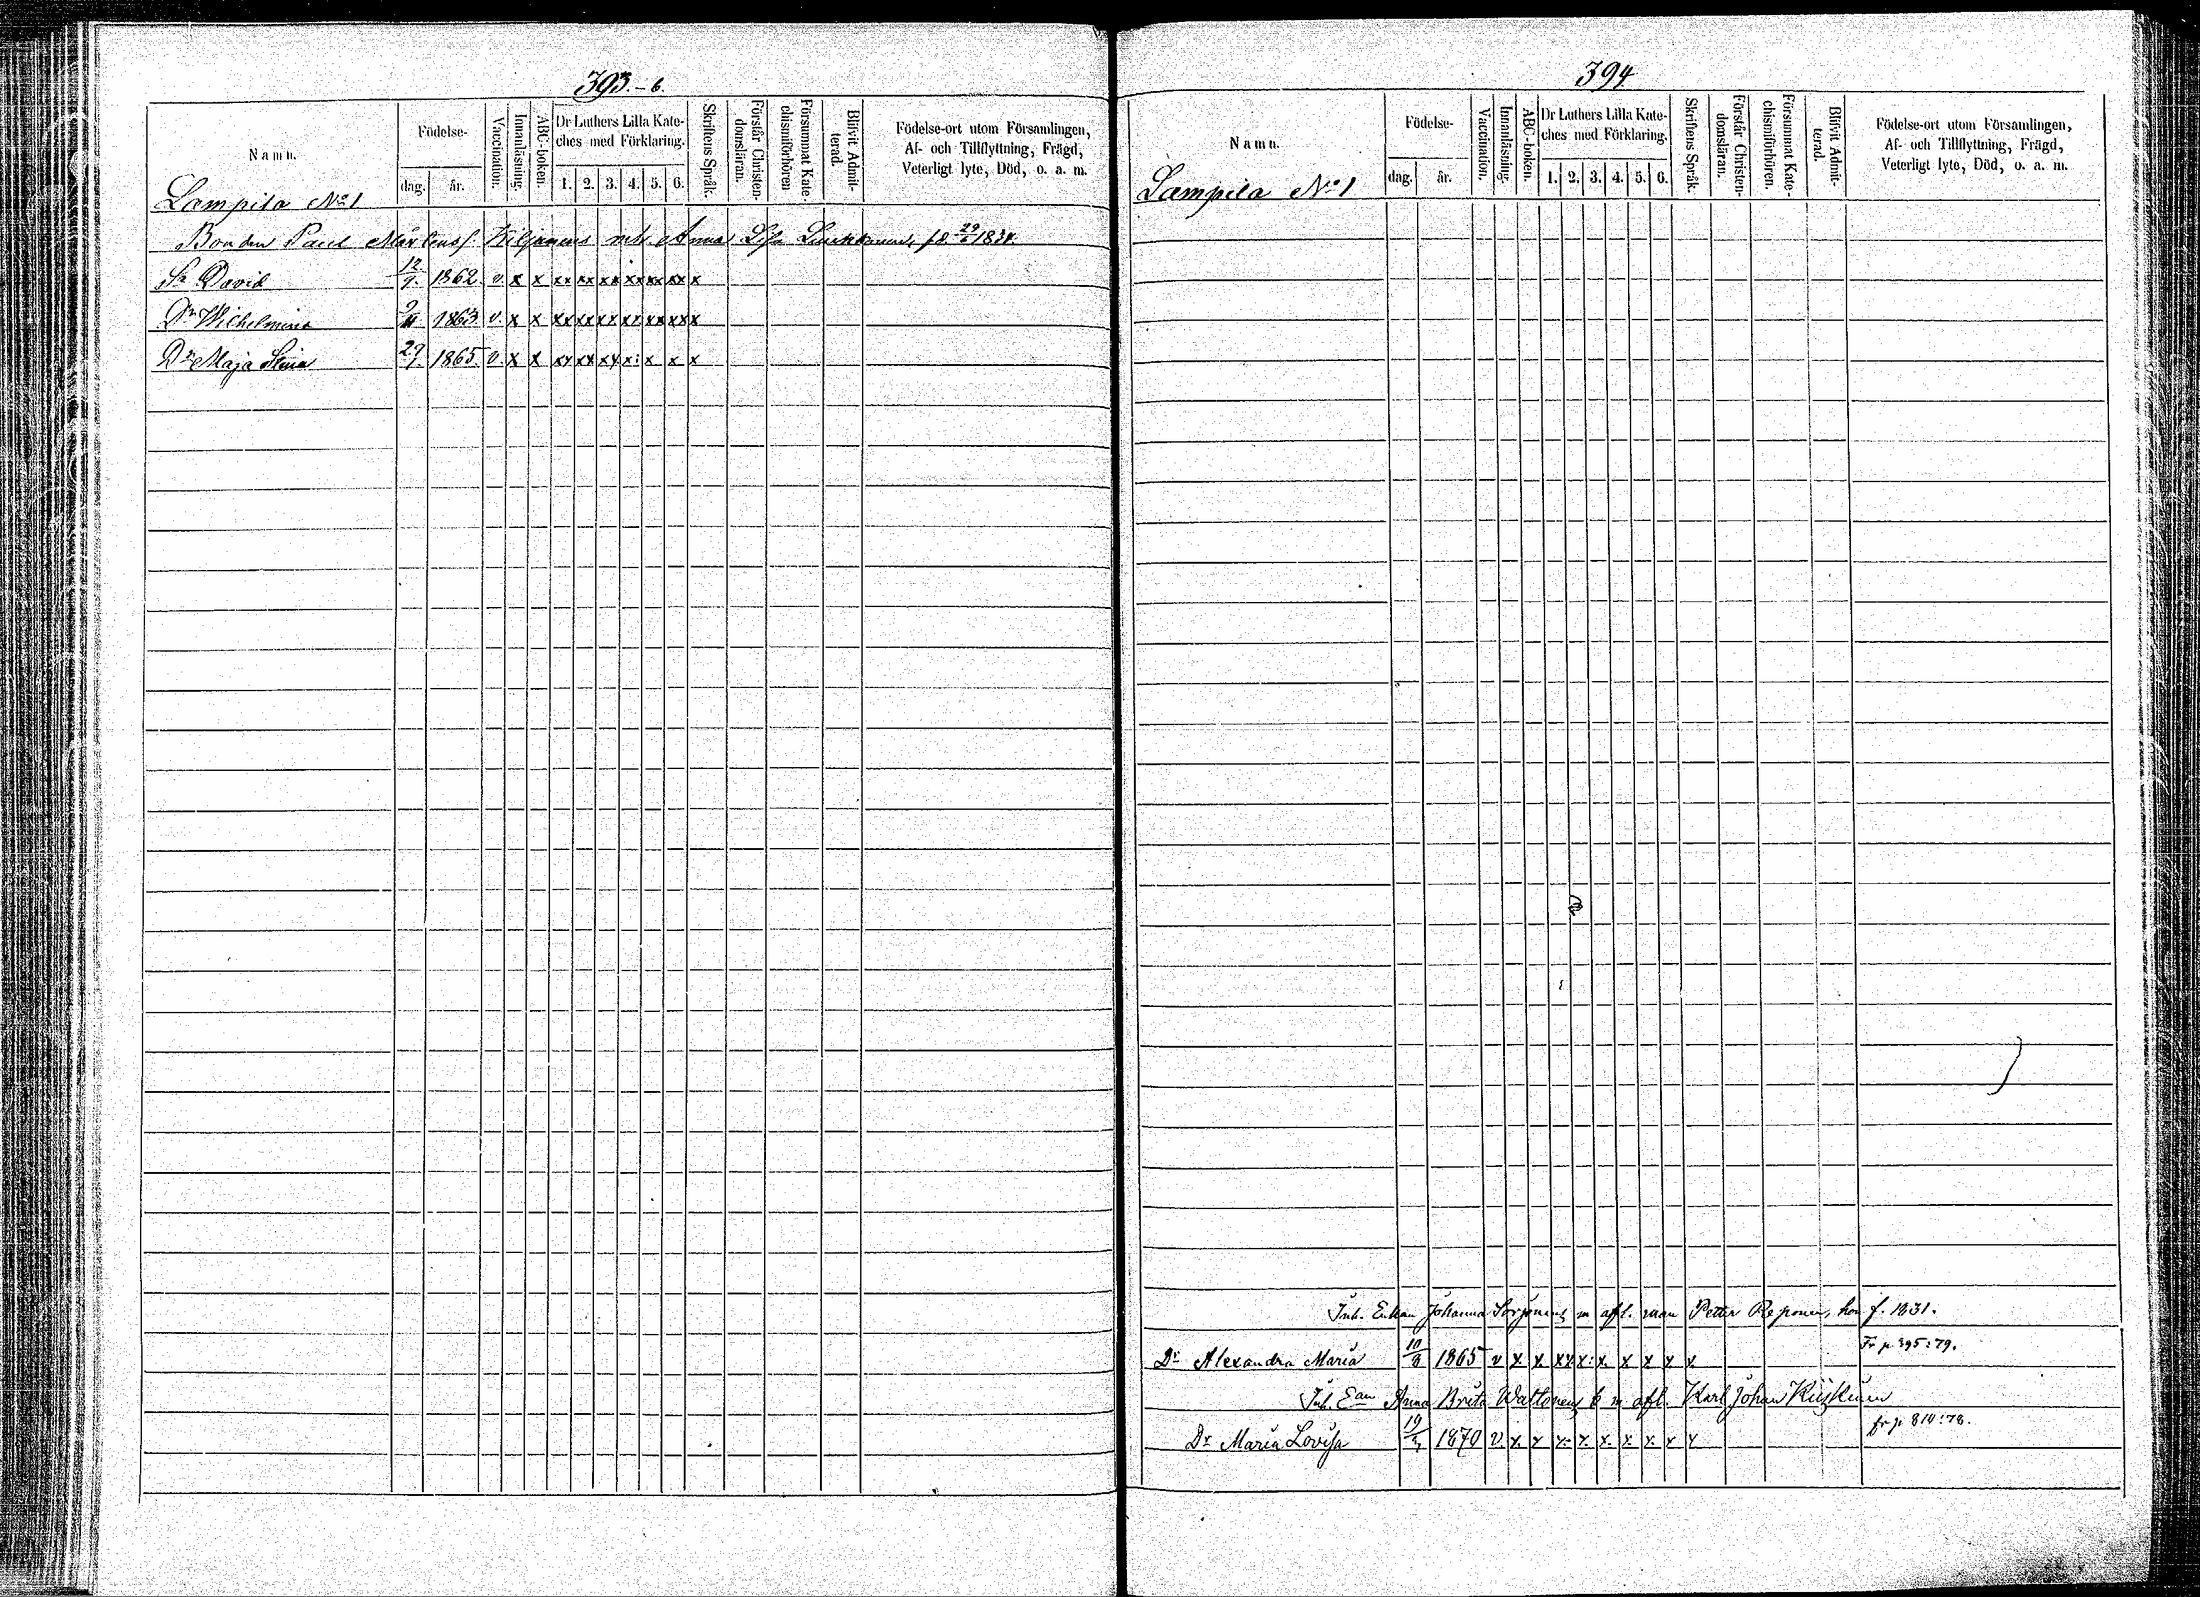 393.-6.
Namn.
Födelse-
dag.
år.
Vaccination.
Innanläsning.
ABC-boken.
Dr Luthers Lilla Kate-
ches med Förklaring.
1. 2. 3. 4. 5. 6.
Skriftens Språk.
Förstår Christen-
domsläran.
Försummat Kate-
chismiförhören
Blifvit Admit-
terad.
Födelse-ort utom Församlingen,
Af- och Tillflyttning, Frägd,
Veterligt lyte, Död, o. a. m.
Lampila No 1
Bonden Paul Mårtenss. Kiljanens och Anna Lisa f.d. 29/6 1834.
Sn David 12/9. 1862. v. x x xx xx xx xx xx xx x
Dr Wilhelmina 1863 v. x x xx xx xx xx xx xx x
Dr Maja Stina 29/7. 1865. v. x x xx xx xx x: x x x
394
Namn.
Födelse-
dag.
år.
Vaccination.
Innanläsning.
ABC-boken.
Dr Luthers Lilla Kate-
ches med Förklaring.
1. 2. 3. 4. 5. 6.
Skriftens Språk.
Förstår Christen-
domsläran.
Försummat Kate-
chismiförhören.
Blifvit Admit-
terad.
Födelse-ort utom Församlingen,
Af- och Tillflyttning, Frägd,
Veterligt lyte, Död, o. a. m.
Lampila No 1
Inh. Enkan Johanna Sorjonens m afl. man Petter Reponen, hon f. 1831.
Dr Alexandra Maria 10/8 1865 v x x xx x: x. x x x x Fr p 395:79.
Inh. Ean Anna Brita Waltonens b m afl. Karl Johan
Dr Maria Lovisa 1870 v x. x x. x. x. x. x. x x fr p 810:78.